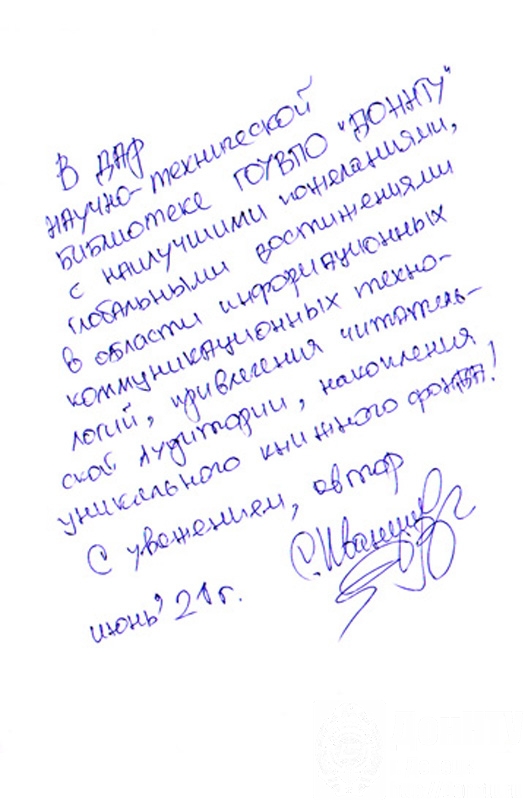 В ДАР
научно-технической
библиотеке ГОУВПО "ДОННТУ"
с наилучшими пожеланиями,
глобальными достижениями
в области информационных
коммуникационных техно-
логий, привлечения читатель-
ской аудитории, накопления
уникального книжного фонда!
С уважением, автор
июнь' 21г.